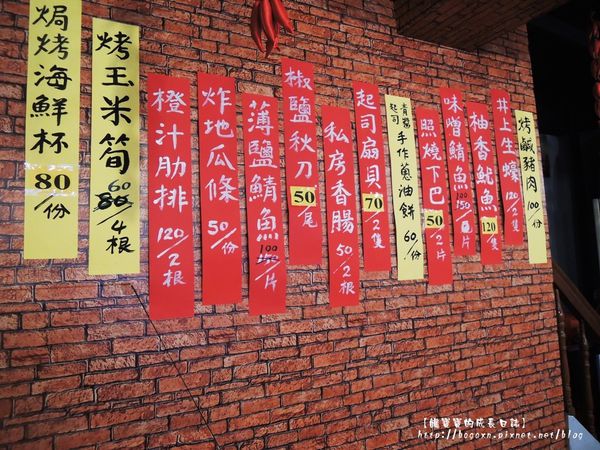 焗烤海鮮杯 80/份
烤玉米筍 60 80/4根
橙汁肋排 120/2根
炸地瓜條 50/份
薄鹽鯖魚 100 150/片
椒鹽秋刀 50/尾
私房香腸 50/2根
起司扇貝 70/2隻
起司手作蔥油餅 60/份
照燒下巴 50/2片
味噌鯖魚 100 150/片
柚香魷魚 120/隻
井上生蠔 120/2隻
烤鹹豬肉 100/份
【熊寶寶的成長日誌】
http://bogoxn.pixnet.net/blog